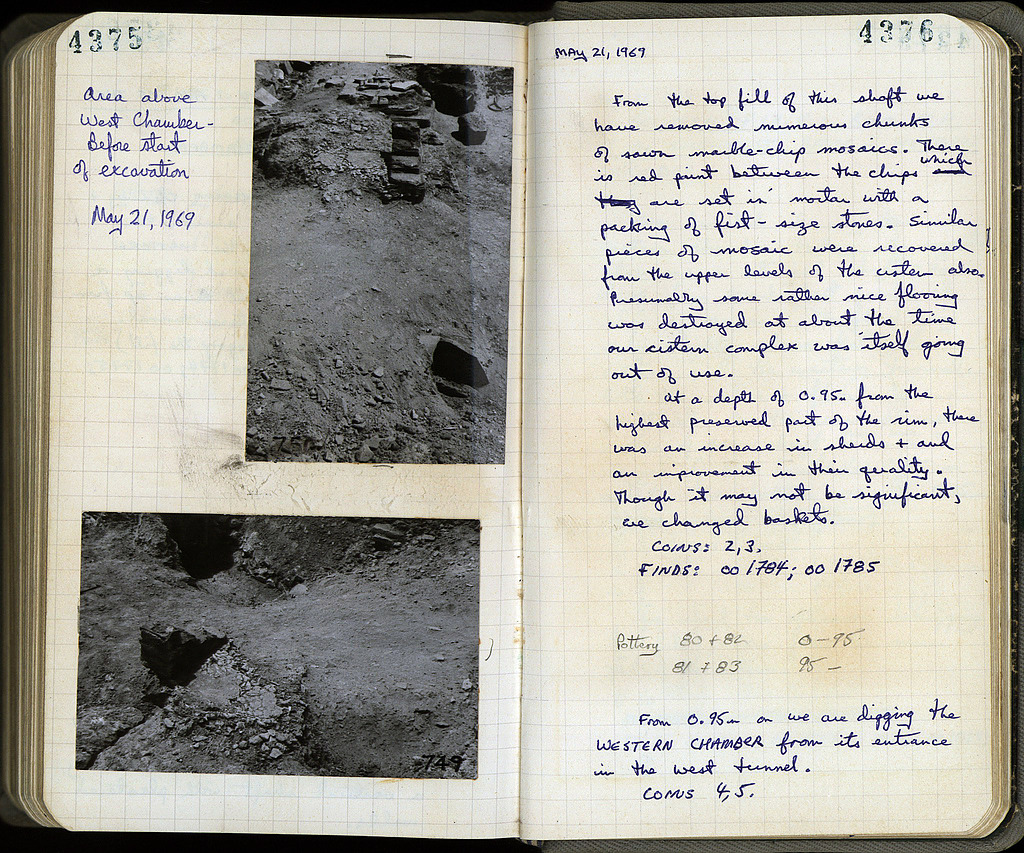 4375
Area above
West Chamber-
Before start
of excavation
May 21, 1969
750
749
4376
MAY 21, 1969
From the top fill of this shaft we
have removed numerous chunks
of sawn marble-chip mosaics. There
is red paint between the chips which
are set in mortar with a
packing of fist-size stones. Similar
pieces of mosaic were recovered
from the upper levels of the cistern also.
Presumably some rather nice flooring
was destroyed at about the time
our cistern complex was itself going
out of use.
At a depth of 0.95m from the
highest preserved part of the rim, there
was an increase in sherds + and
an improvement in their quality.
Though it may not be significant,
we changed baskets.
COINS: 2,3.
FINDS: 00 1784; 00 1785
Pottery 80 + 82 0-95
81 + 83 95 -
From 0.95m on we are digging the
WESTERN CHAMBER from its entrance
in the west tunnel.
COINS 4,5.